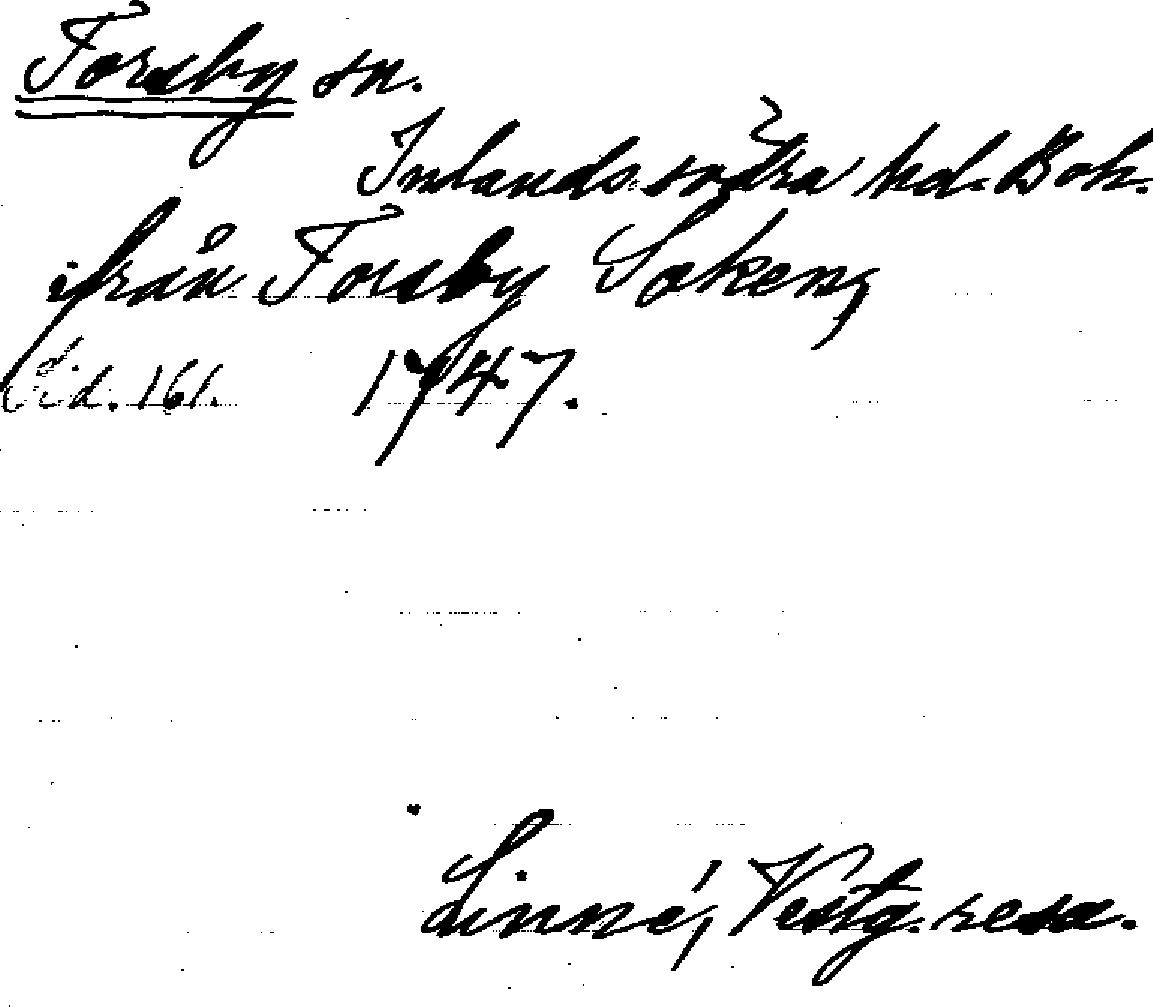 Forsby sn.
Inlands södra hd. Boh.
ifrån Forsby Soken,
Sid. 161. 1747.
Linné, Vestg. resa.